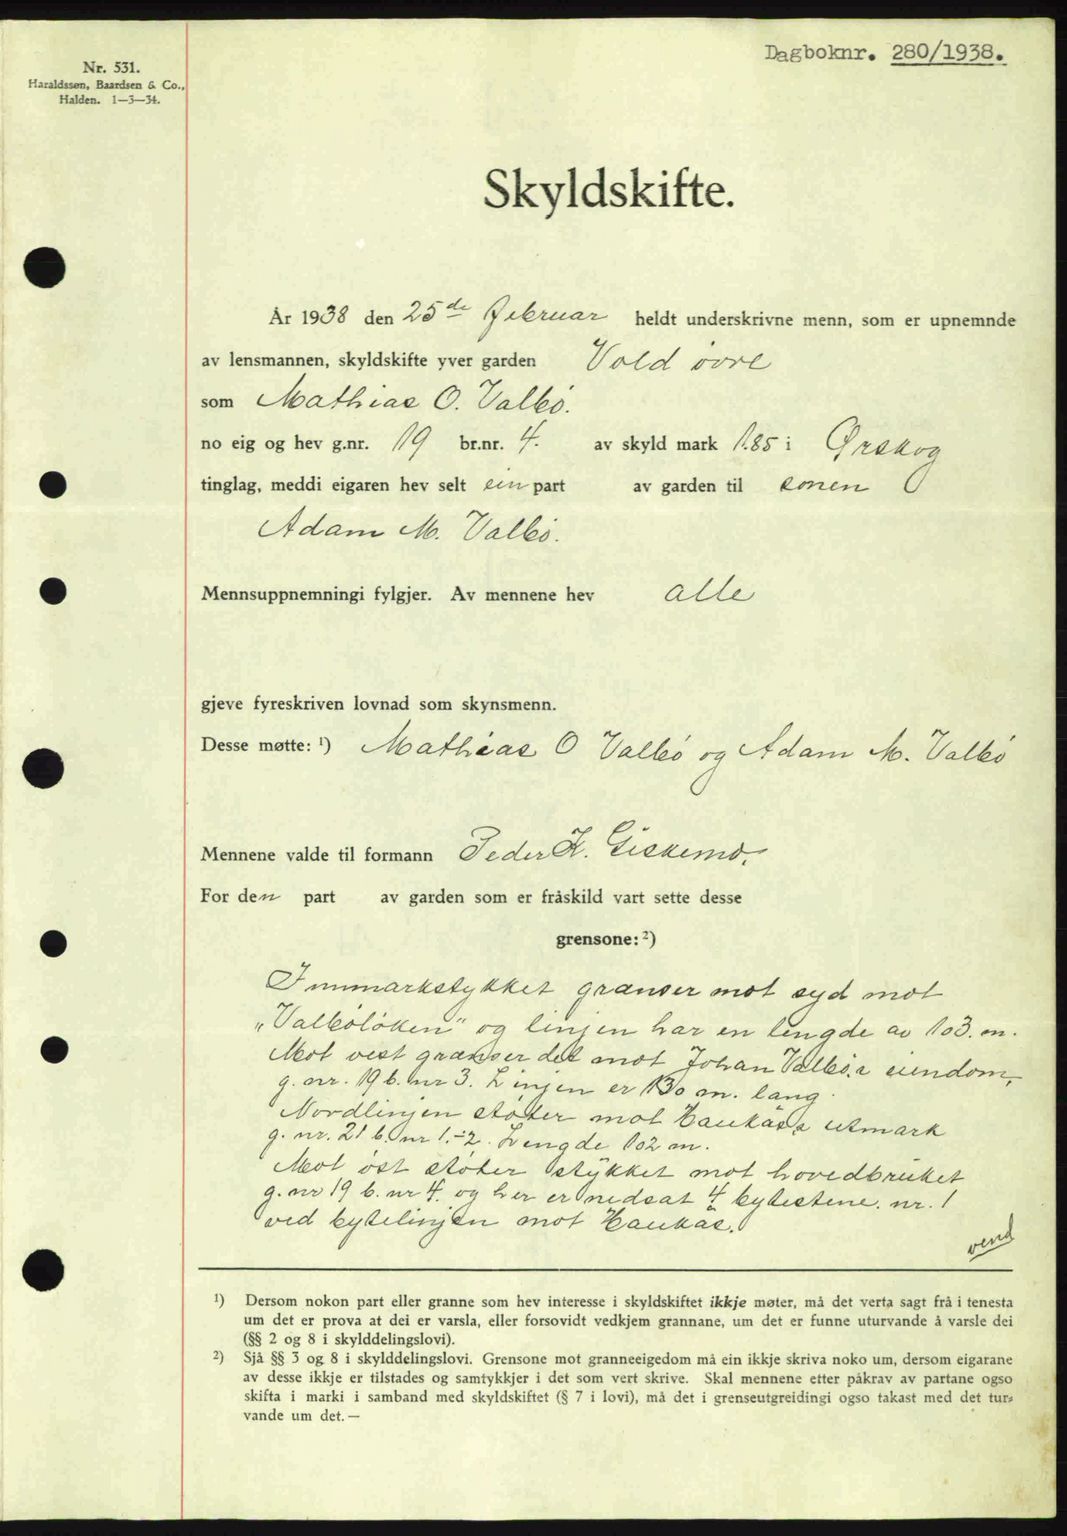 Nr. 531.
Haraldssøn, Baardsen & Co.,
Halden. 1—3—34.
Dagboknr. 280/1938.
Skyldskifte.
År 1938 den 25de februar heldt underskrivne menn, som er upnemnde
av lensmannen, skyldskifte yver garden Vold øvre
som Mathias O. Valbö.
no eig og hev g.nr. 19 br.nr. 4. av skyld mark 1.85 i Ørskog
tinglag, meddi eigaren hev selt ein part av garden til sonen
Adam M. Valbö.
Mennsuppnemningi fylgjer. Av mennene hev alle
gjeve fyreskriven lovnad som skynsmenn.
Desse møtte: ¹) Mathias O Valbö og Adam M. Valbö
Mennene valde til formann Peder K. Giskemo.
For den part av garden som er fråskild vart sette desse
grensone: ²)
Innmarkstykket grænser mot syd mot
"Valbölöken" og linjen har en lengde av 103. m.
Mot vest grænser det mot Johan Valbö.s eiendom,
g. nr. 19 b. nr 3. Linjen er 130 m. lang.
Nordlinjen støter mot Haukås,s utmark
g. nr. 21 b. nr 1.-2. Lengde 102 m.
Mot öst støter stykket mot hovedbruket
g. nr 19 b. nr 4. og her er nedsat 4 bytestene. nr. 1
ved bytelinjen mot Haukås.
vend
¹) Dersom nokon part eller granne som hev interesse i skyldskiftet ikkje møter, må det verta sagt frå i tenesta
um det er prova at dei er varsla, eller forsovidt vedkjem grannane, um det er funne uturvande å varsle dei
(§§ 2 og 8 i skylddelingslovi).
²) Sjå §§ 3 og 8 i skylddelingslovi. Grensone mot granneeigedom må ein ikkje skriva noko um, dersom eigarane
av desse ikkje er tilstades og samtykkjer i det som vert skrive. Skal mennene etter påkrav av partane ogso
skifta i marki i samband med skyldskiftet (§ 7 i lovi), må det i grenseutgreidingi ogso takast med det tur-
vande um det. —